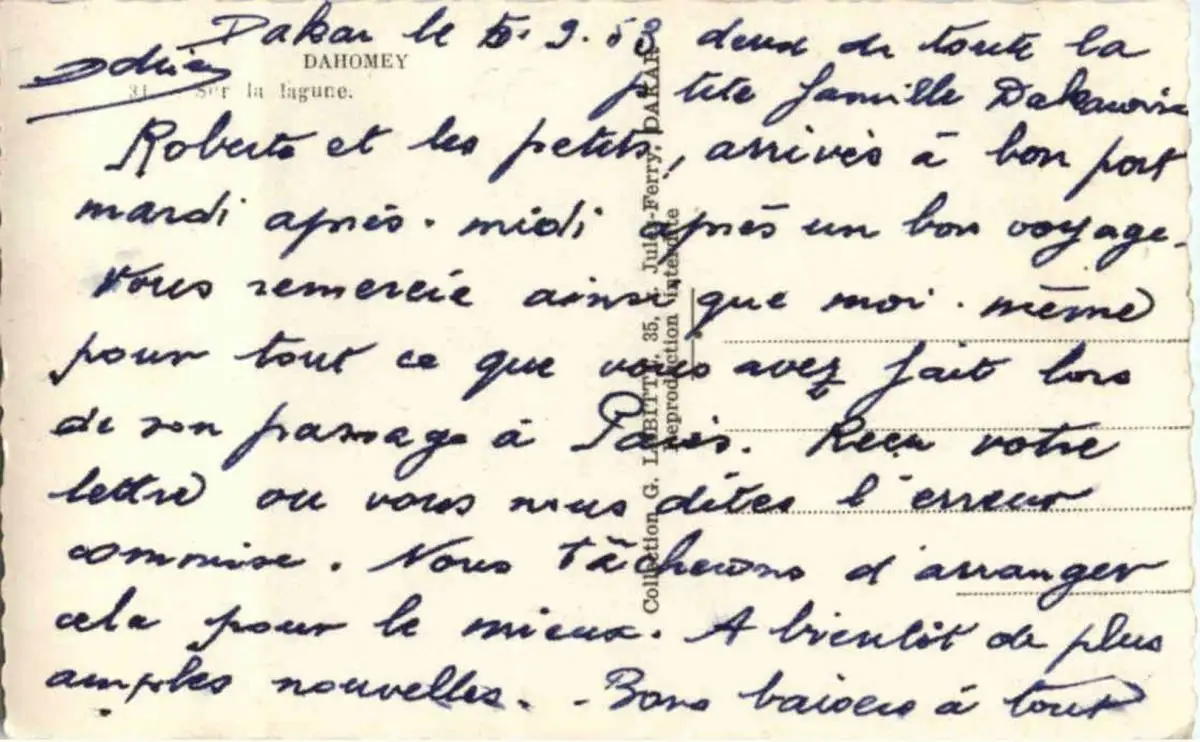 Dakar le 5. 9. 53
DAHOMEY
31. - Sur la lagune.
Roberte et les petits, arrivés à bon port
mardi après-midi après un bon voyage.
Vous remercie ainsi que moi-même
pour tout ce que vous avez fait lors
de son passage à Paris. Reçu votre
lettre ou vous nous dites l'erreur
commise. Nous tâcherons d'arranger
cela pour le mieux. A bientôt de plus
amples nouvelles. - Bons baisers à tout
deux de toute la
petite famille Dakaroise
Adrien
Collection G. LABITTE, 35, r. Jules-Ferry, DAKAR
Reproduction interdite